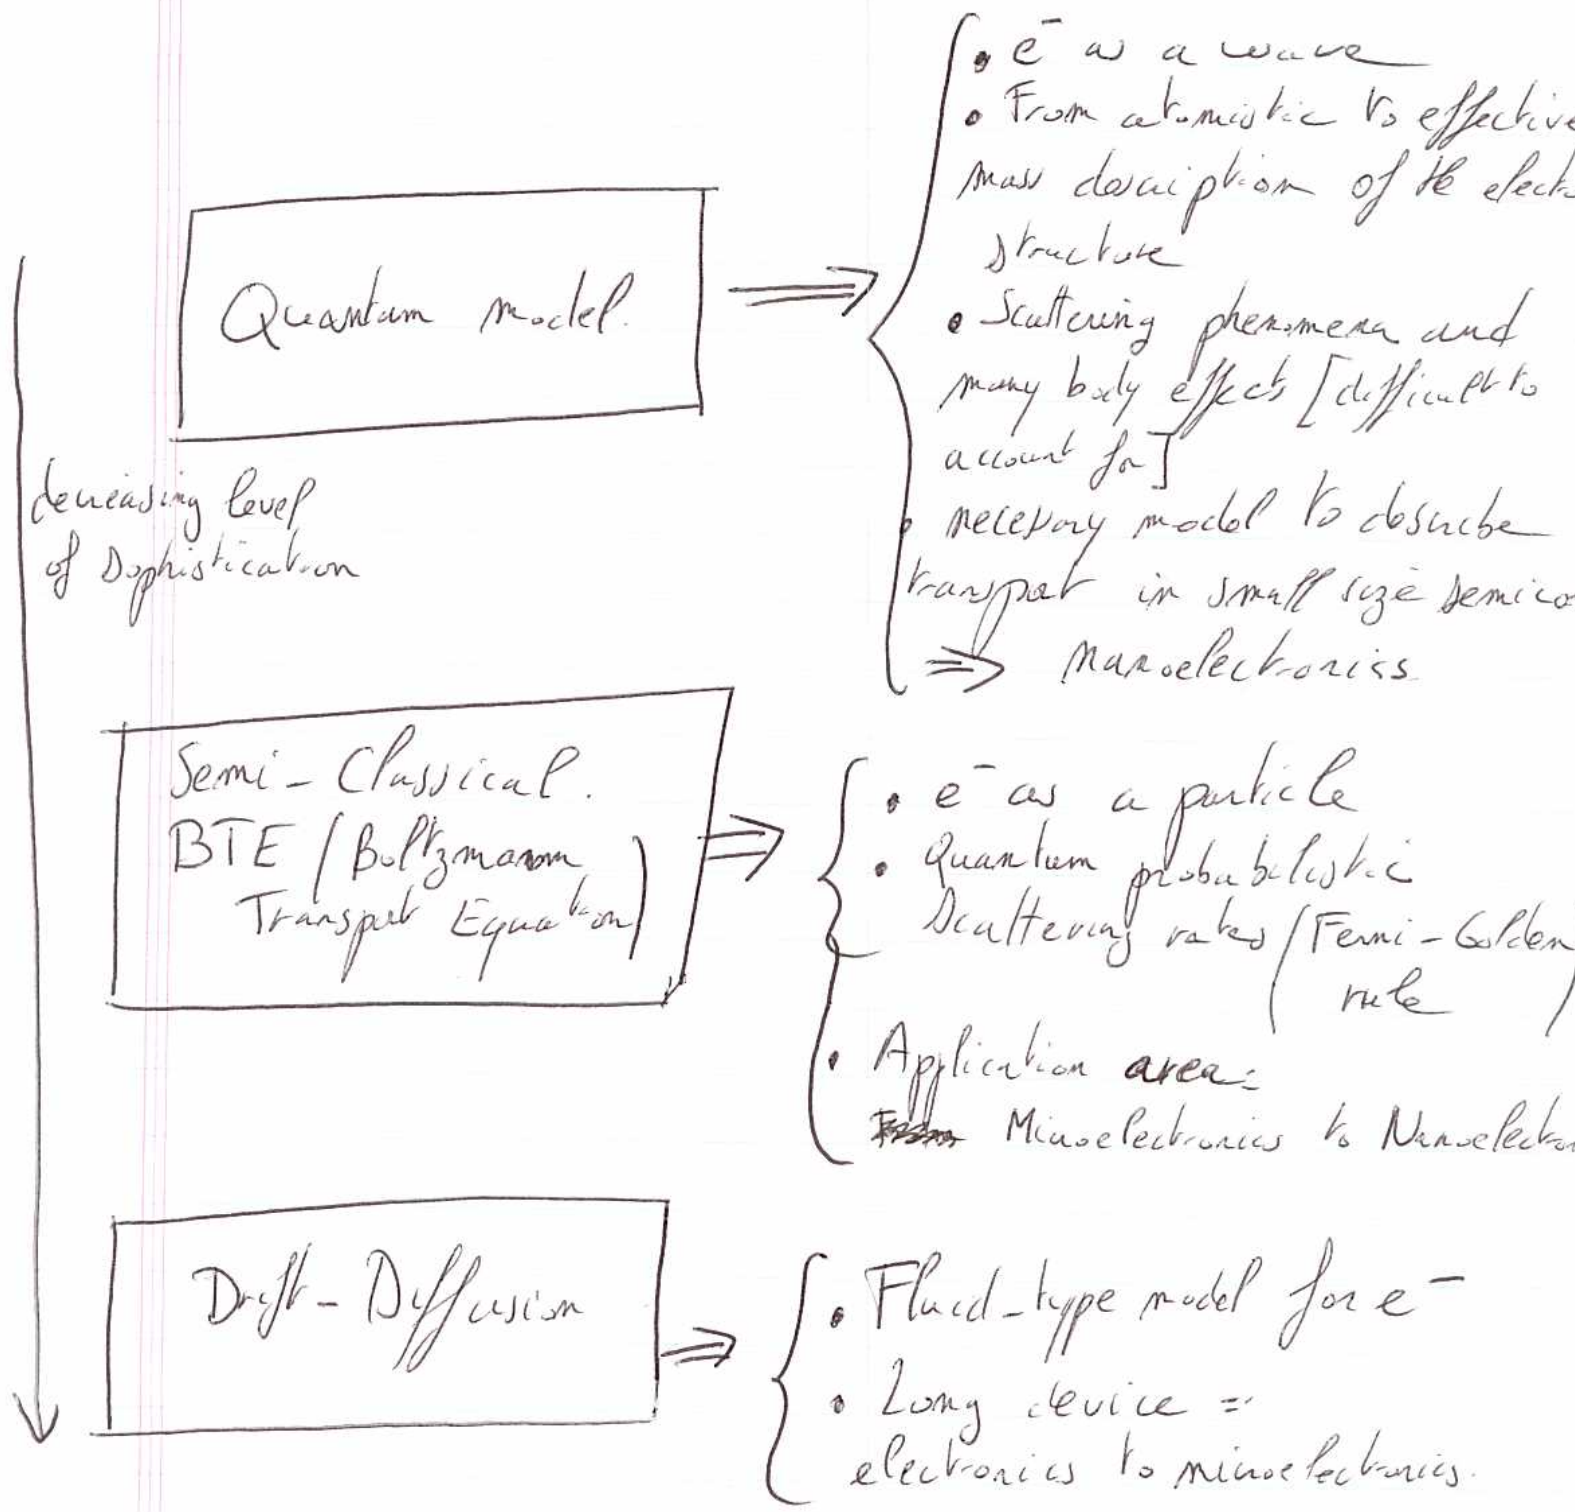 decreasing level
of Sophistication
Quantum model.
• e⁻ as a wave
• From atomistic to effective
mass description of the elect
structure
• Scattering phenomena and
many body effects [difficult to
account for]
• necessary model to describe
transport in small size semico
⇒ nanoelectronics.
Semi-Classical.
BTE (Boltzmann
Transport Equation)
• e⁻ as a particle
• Quantum probabilistic
Scattering rates (Fermi-Golden
rule)
• Application area:
Microelectronics to Nanoelectron
Drift-Diffusion
• Fluid-type model for e⁻
• Long device =
electronics to microelectronics.